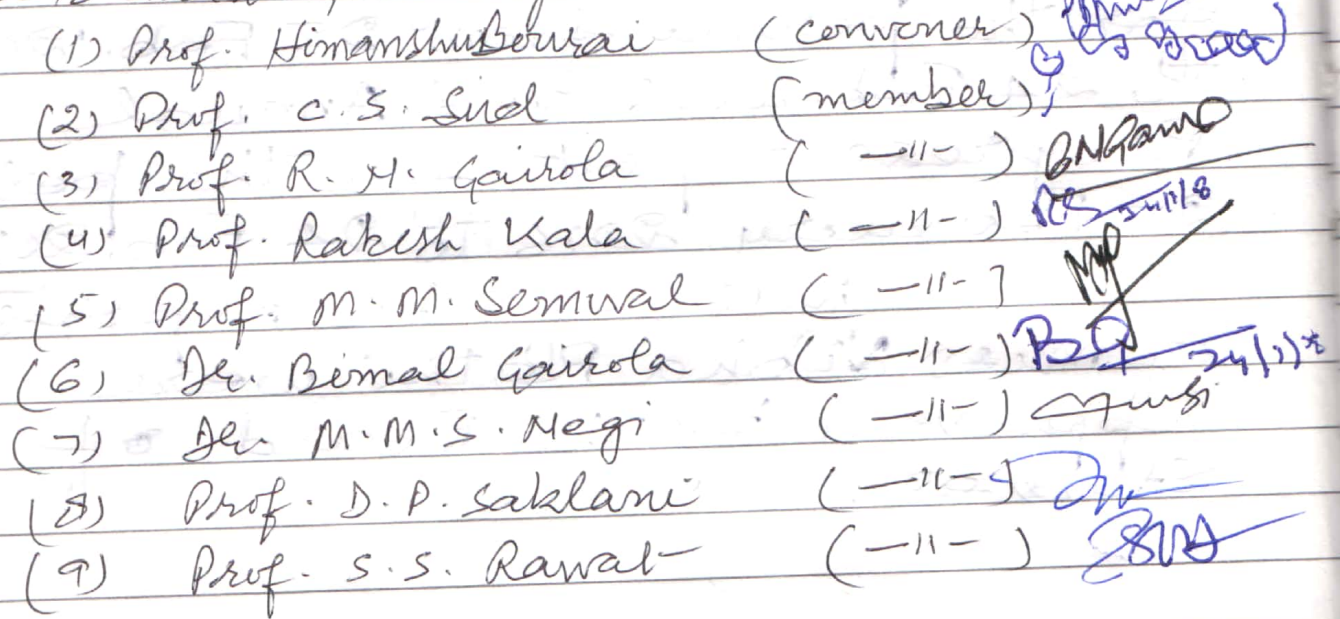 (1) Prof. Himanshu Bourai (convener)
(2) Prof. C. S. Sud (member)
(3) Prof. R. N. Gairola ( —11- )
(4) Prof. Rakesh Kala ( —11- )
(5) Prof. M. M. Semwal ( —11- ]
(6) Dr. Bimal Gairola ( —11- )
(7) Dr. M. M. S. Negi ( —11- )
(8) Prof. D. P. Saklani ( —11- )
(9) Prof. S. S. Rawat ( —11- )